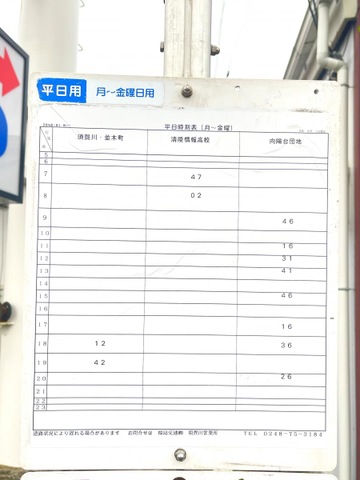 平日用 月～金曜日用
平日時刻表（月～金曜）
須賀川・並木町 清陵情報高校 向陽台団地
5
6
7 47
8 02
9 46
10
11 16
12 31
13 41
14
15 46
16
17 16
18 12 36
19 42
20 26
21
22
23
道路状況により遅れる場合があります お問合せは 福島交通㈱ 須賀川営業所 TEL 0248-75-3184